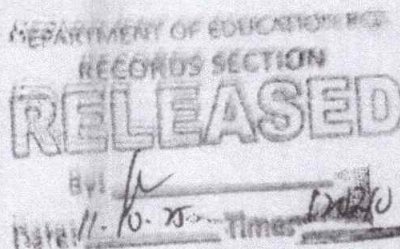 DEPARTMENT OF EDUCATION
RECORDS SECTION
RELEASED
By:
Date: 11.10.25 Time: